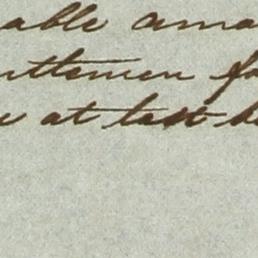 able ama
ntlemen fo
at last h